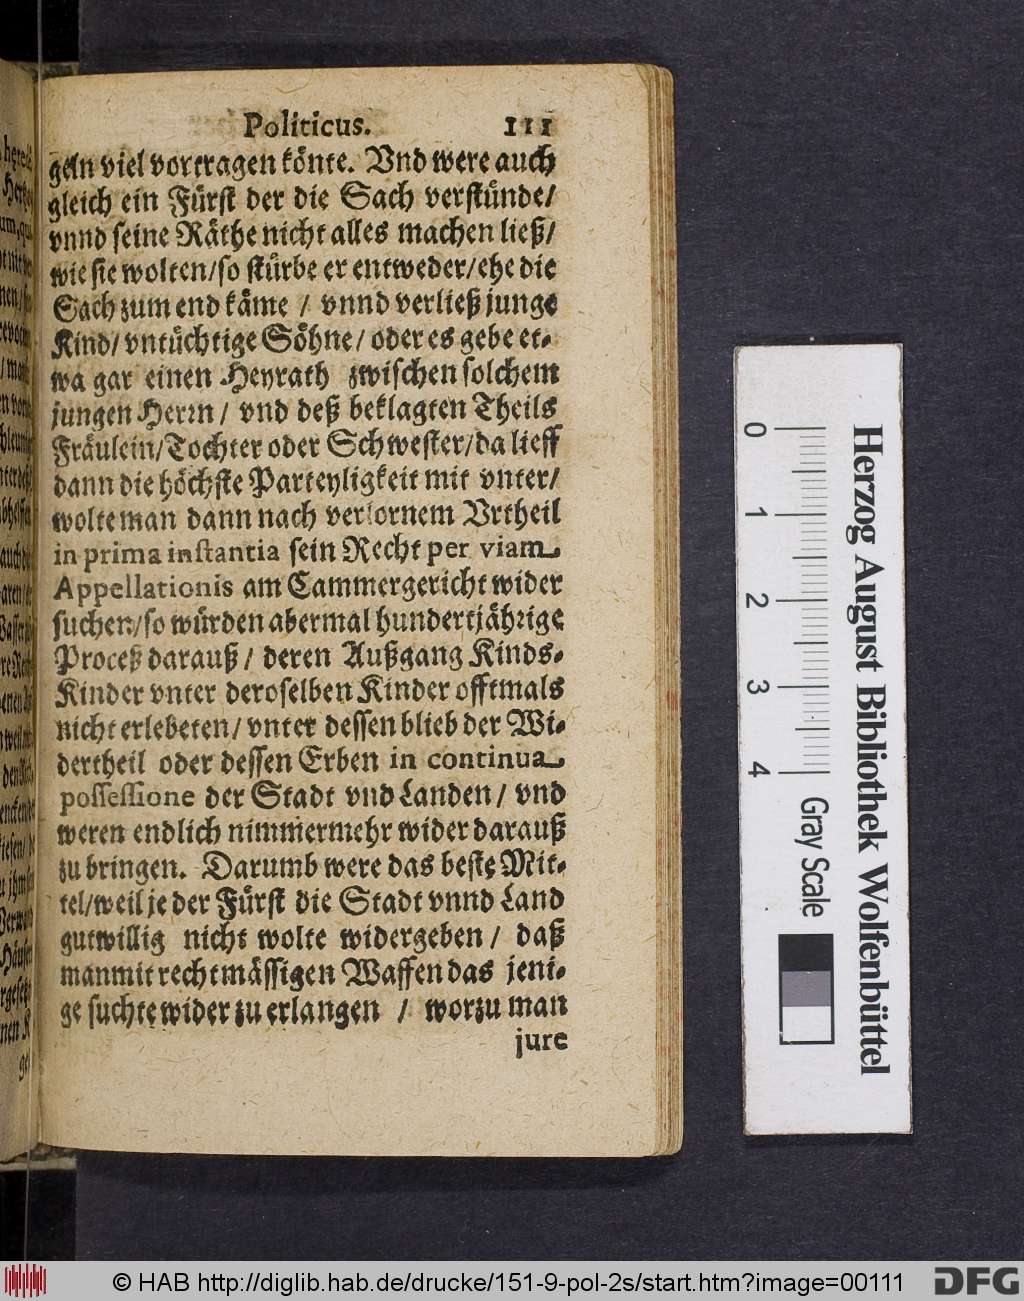 Politicus. 111
geln viel vortragen könte. Vnd were auch
gleich ein Fürst der die Sach verstünde/
vnnd seine Räthe nicht alles machen ließ/
wie sie wolten/so stürbe er entweder/ehe die
Sach zum end käme / vnnd verließ junge
Kind/ vntüchtige Söhne/ oder es gebe et-
wa gar einen Heyrath zwischen solchem
jungen Herrn/ vnd deß beklagten Theils
Fräulein/Tochter oder Schwester/da lieff
dann die höchste Parteyligkeit mit vnter/
wolte man dann nach verlornem Vrtheil
in prima instantia sein Recht per viam
Appellationis am Cammergericht wider
suchen/so würden abermal hundertjährige
Proceß darauß/ deren Außgang Kinds-
Kinder vnter deroselben Kinder offtmals
nicht erlebeten/ vnter dessen blieb der Wi-
dertheil oder dessen Erben in continua
possessione der Stadt vnd Landen/ vnd
weren endlich nimmermehr wider darauß
zu bringen. Darumb were das beste Mit-
tel/weil je der Fürst die Stadt vnnd Land
gutwillig nicht wolte widergeben/ daß
man mit rechtmässigen Waffen das jeni-
ge suchte wider zu erlangen / worzu man
jure
0 1 2 3 4
Gray Scale
Herzog August Bibliothek Wolfenbüttel
© HAB http://diglib.hab.de/drucke/151-9-pol-2s/start.htm?image=00111
DFG